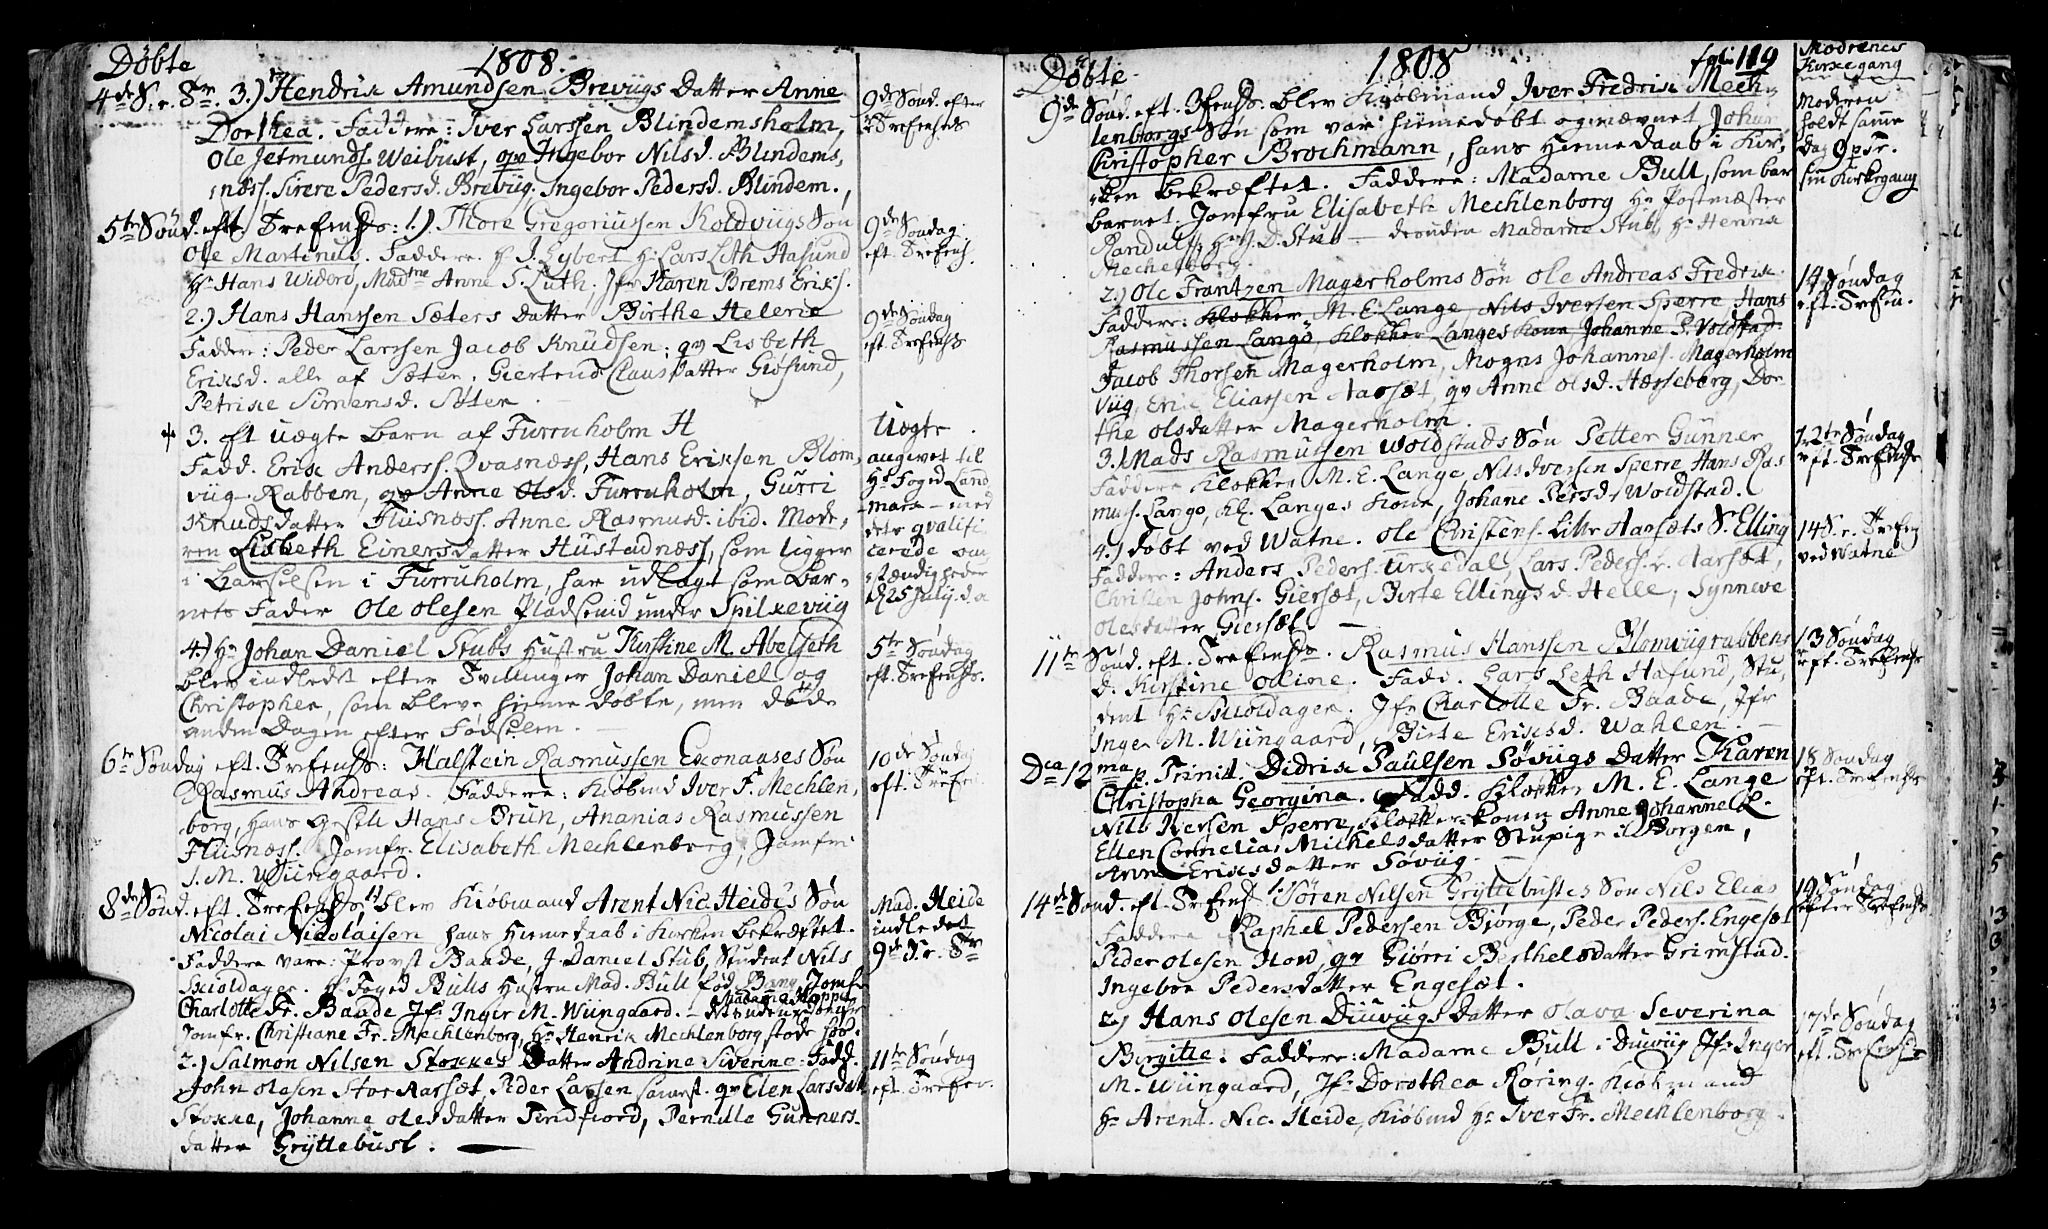 Døbte 1808.
4de S. e. Tr. 3.) Hendrik Amundsen Breviigs Datter Anne
Dorthea. Faddere: Iver Larssen Blindemsholm,
Ole Jetmunds. Weibust, qv Ingebor Nilsd. Blindems,
næss. Sirere Pedersd. Breviig. Ingebor Pedersd. Blindem.
9de Sønd. efter
Trefenhds
5te Sønd. eft. Trefenhds: 1.) Thore Gregoriussen Koldviigs Søn
Ole Martinus. Faddere. Hr J. Lybert Hr Lars Leth Hasund
Hr Hans Widerø, Madme Anne S. Luth. Jfr Karen Brems Eriks.
9de Søndag
eft. Trefenh.
2.) Hans Hanssen Sæters Datter Birthe Helene
Faddere: Peder Larssen Jacob Knudsen; qv Lisbeth
Eriksd. alle af Sæter, Giertrud Clausdatter Giøsund,
Petrike Simensd. Søter.
9de Søndag
eft. Trefenhds
3. Et uægte Barn af Furruholm H
Fadd. Erik Anderss. Qvasnæss, Hans Eriksen Blom,
viig Rabben, qv Anne Olsd. Furruholm, Gurri
Knudsdatter Fliisnæss. Anne Rasmusd. ibid. Mode,
ren Lisbeth Einersdatter Hustadnæss, som ligger
i Barselsen i Furruholm, har udlagt som Bar-
nets Fader Ole Olesen Pladsemd under Spilkeviig
Uægte.
angivet til
Hr Foged Land
mark - med
dets qvalifi
cerede om
stændigheder
d 25 July. d. a
4.) Hr Johan Daniel Stubs Hustru Kirstine M. Abelseth
blev indledt efter Tvillinger Johan Daniel og
Christopher, som bleve hiemedøbte, men døde
anden Dagen efter Fødselen.
5te Søndag
eft. Trefenhds.
6te Søndag eft. Trefenhds: Halstein Rasmussen Exonaases Søn
Rasmus Andreas. Faddere: Kiøbmd Iver F. Mechlen,
borg, hans Gesell Hans Brun, Ananias Rasmussen
Fliisnæss. Jomfr. Elisabeth Mechlenborg, Jomfr
I. M. Wiingaard.
10de Søndag
eft. Trefen.
8de Sønd. eft. Trefenhds 1) blev Kiøbmand Arent Nic. Heides Søn
Nicolai Nicolaisen hans Hiemedaab i Kirken bekræftet.
Faddere vare: Provst Baade, J. Daniel Stub, Student Nils
Skioldager. Hr Foged Bulls Hustru Mad. Bull fød Bang Jomfr
Charlotte Fr. Baade Jfr. Inger M. Wiingaard. - Desuden Madame Hoppe
Jomfr. Christiane Fr. Mechlenborg, Hr Henrik Mechlenborg stode hos.
Mad. Heide
indledet
9de S. e. Tr
2.) Salmon Nilsen Stokkes Datter Andrine Siverine. Fadd.
John Olesen Stor Aarsæt, Peder Larsen samst. qv Elen Larsdatt
Stokke, Johanne Olesdatter Tindfiord, Pernille Gunners-
datter Gryttebust.
11te Søndag
eft. Trefen.
Døbte. 1808 fol: 119
Modrenes
Kirkegang
9de Sønd. eft. Trefenhds. blev Kiøbmand Iver Fredrik Mech,
lenborgs Søn som var hiemedøbt og nævnet Johan
Christopher Brochmann, hans Hiemedaab i Kir,
ken bekræftet. Faddere: Madame Bull, som bar
barnet. Jomfru Elisabeth Mechlenborg Hr Postmæster
Randulf, Hr J. D. Stub - desuden Madame Stub, Hr Henrik
Mechlenborg.
Moderen
holdt samme
dag 9 p Tr.
sin Kirkegang
2.) Ole Frantzen Magerholms Søn Ole Andreas Fredrik
Faddere: Klokker M. E. Lange, Nils Iversen Sperre Hans
Rasmussen Langø, Klokker Langes Kone Johanne P. Voldstad.
Jacob Thorsen Magerholm, Mogns Johannes. Magerholm
Viig, Erik Eliassen Aarsæt, qv Anne Olsd. Hæsseberg, Dor
the Olsdatter Magerholm.
14 Søndag
eft. Trefen.
3. Mads Rasmussen Woldstads Søn Petter Gunner
Faddere Klokker M. E. Lange, Nils Iversen Sperre Hans Ras
muss. Langø, Kl. Langes Kone, Johane Persd. Woldstad.
12te Søndag
eft. Trefenhds
4.) døbt ved Watne. Ole Christens. Lille Aarsæts S. Elling
Faddere: Anders Peders. Urskedal, Lars Peders. Aarsæt,
Christen Johns. Giersæt, Birte Ellingsd. Helle, Synneve
Olesdatter Giersæt.
14 S. e. Trefen
ved Watne
11te Sønd. eft. Trefenhds. Rasmus Hanssen Blomviigrabbens
D. Kirstine Oline. Fadd. Lars Leth Hasund, Stu,
dent Hr Skioldager. Jfr Charlotte Fr. Baade, Jfr
Inger M. Wiingaard, Birte Eriksd. Wahlen
13 Søndag
eft. Trefenhds
Dca 12ma p. Trinit. Didrik Paulsen Søviigs Datter Karen
Christopha Georgina. Fadd. Klokker M. E. Lange
Nils Iversen Sperre, Klokkerkonen Anne Johanne L.
Ellen Cornelia, Michelsdatter Stupige i Borgen,
Anne Eriksdatter Søviig.
18 Søndag
eft. Trefenhds
14de Sønd. eft. Trefenh. 1. Søren Nilsen Gryttebustes Søn Nils Elias
Faddere Raphel Pedersen Biørge, Peder Peders. Engesæt
Peder Olesen How, qv Giørri Berthelsdatter Grimstad.
Ingebor Pedersdatter Engesæt.
19 Søndag
efter Trefenhds
2) Hans Olesen Duuvigs Datter Olava Severina
Birgitte. Faddere: Madame Bull i Duuviig Jfr Inger
M. Wiingaard, Jfr Dorothea Røring. Kiøbmand
Hr Arent. Nic. Heide, Kiøbmd Hr Iver Fr. Mechlenborg.
17de Søndag
eft. Trefenhds